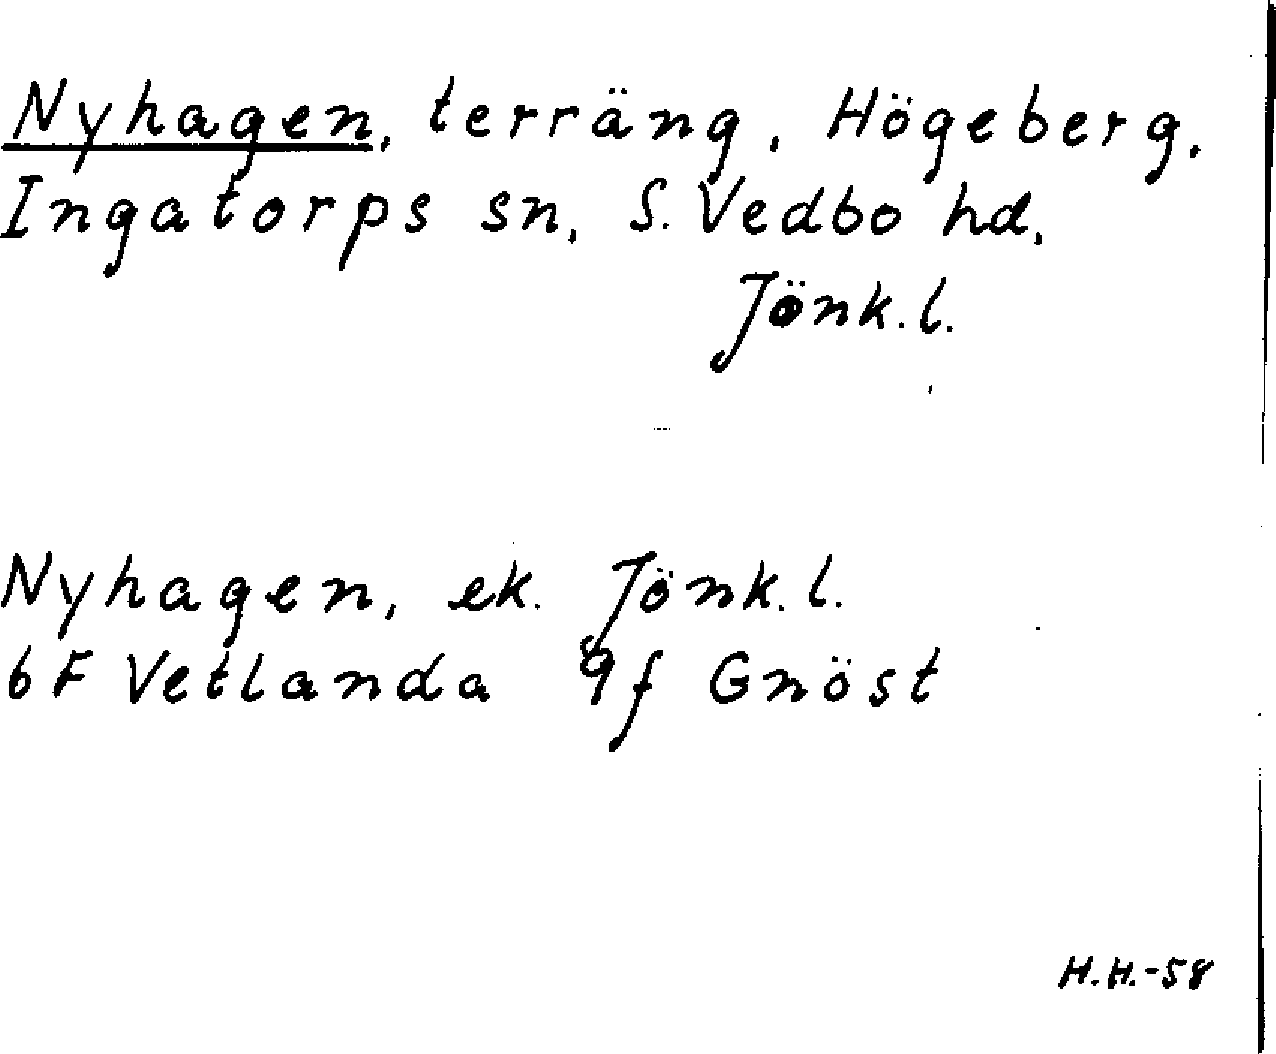 Nyhagen, terräng, Högeberg.
Ingatorps sn, S. Vedbo hd,
Jönk. l.
Nyhagen, ek. Jönk. l.
6F Vetlanda 9f Gnöst
H.H.-58